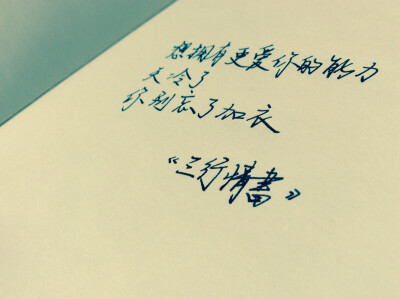 想拥有更爱你的能力
天冷了
你别忘了加衣
《三行情書》